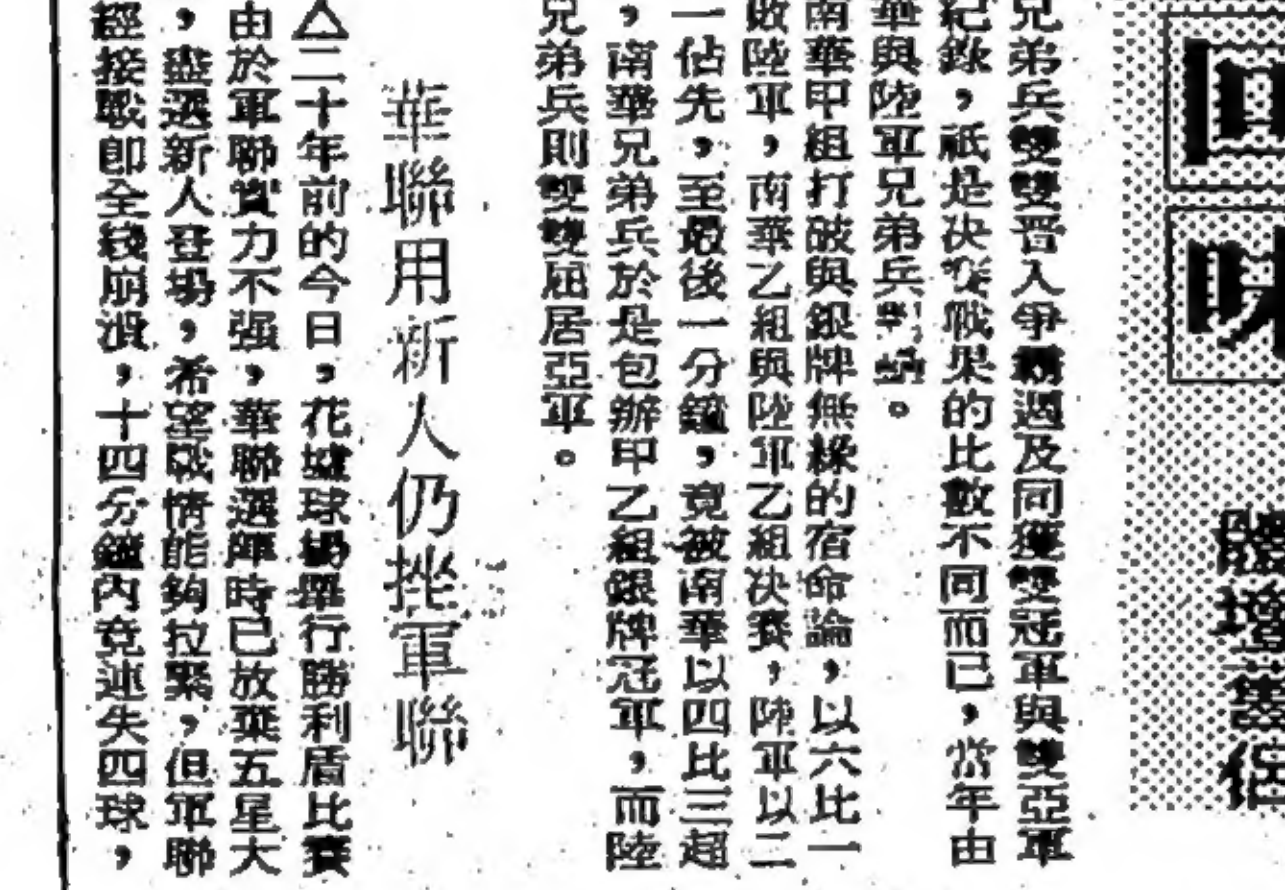 回味
體壇書侶
兄弟兵雙雙晉入爭標週及同獲雙冠軍與雙亞軍
紀錄，祇是決賽戰果的比數不同而已，當年由
華與陸軍兄弟兵
南華甲組打破與銀牌無緣的宿命論，以六比一
敗陸軍，南華乙組與陸軍乙組決賽，陸軍以二
一佔先，至最後一分鐘，竟被南華以四比三超
，南華兄弟兵於是包辦甲乙組銀牌冠軍，而陸
兄弟兵則雙雙屈居亞軍。
華聯用新人仍挫軍聯
△二十年前的今日，花墟球場舉行勝利盾比賽
由於軍聯實力不强，華聯選陣時已放棄五星大
，盡選新人登場，希望戰情能夠拉緊，但軍聯
經接戰即全綫崩潰，十四分鐘內竟連失四球，